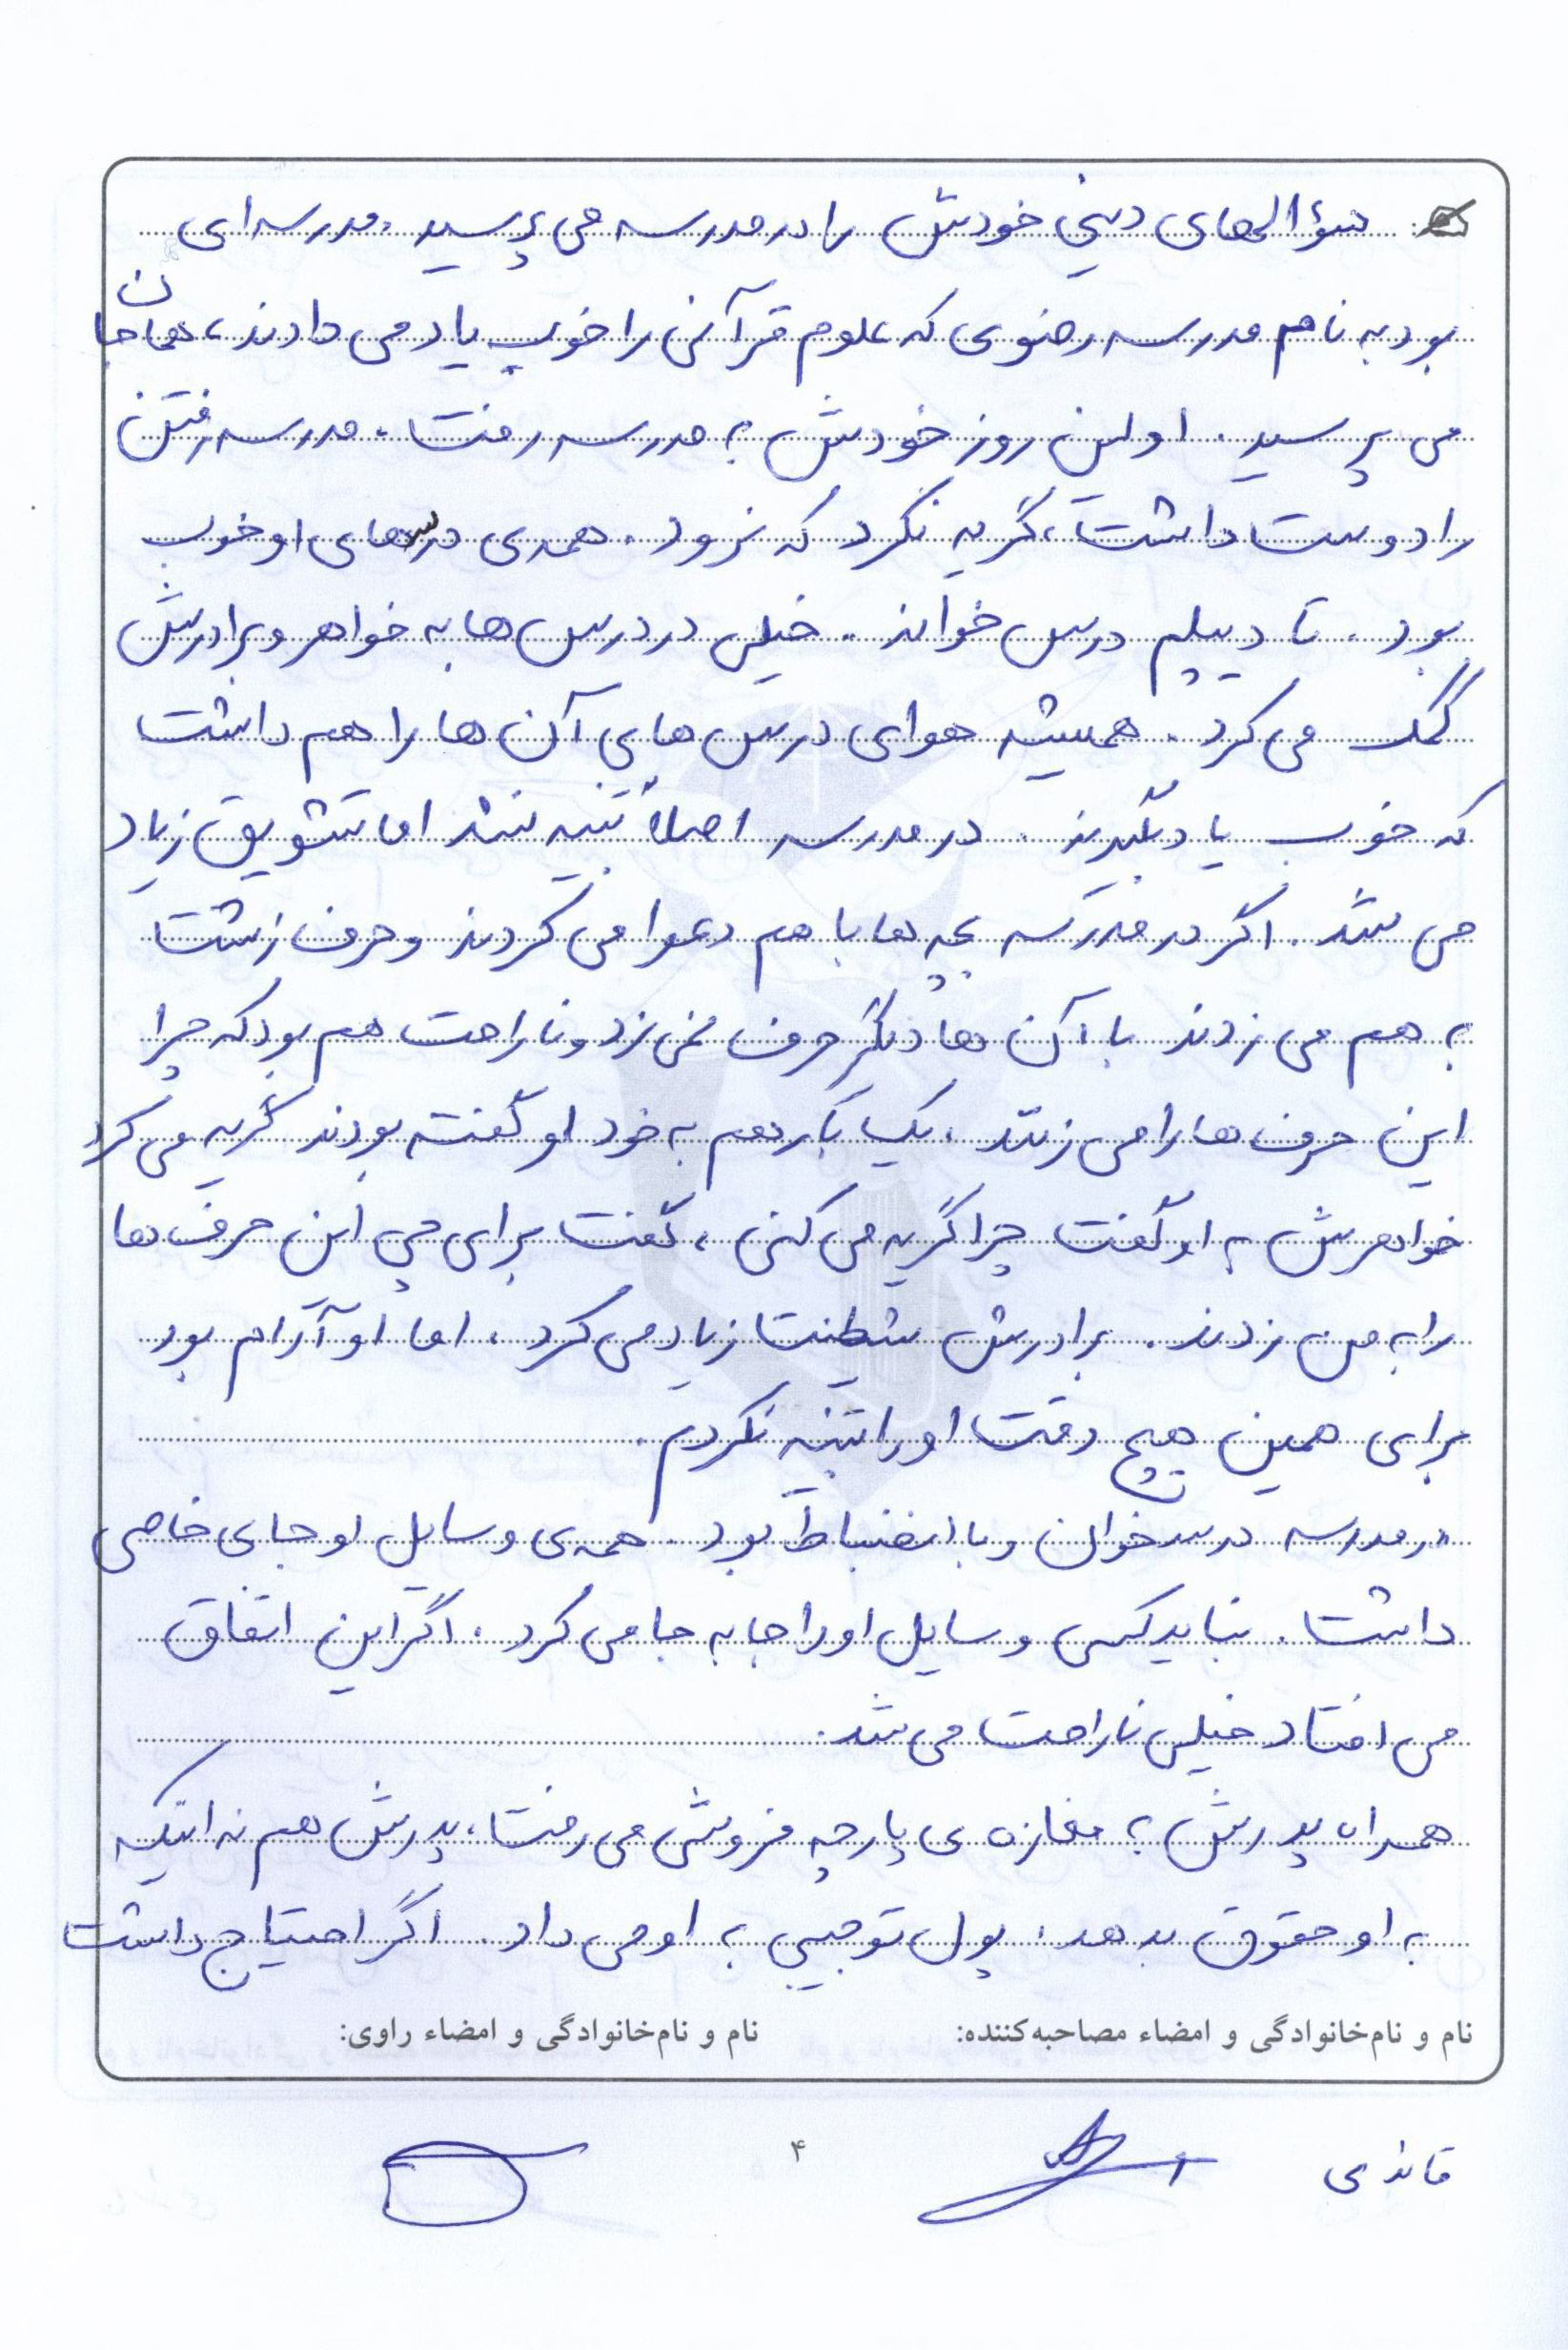 سؤالهای دینی خودش را در مدرسه می پرسید. مدرسه ای
بود به نام مدرسه رضوی که علوم قرآنی را خوب یاد می دادند، همان جا
می پرسید. اولین روز خودش به مدرسه رفت. مدرسه رفتن
را دوست داشت، گریه نکرد که نرود. همه ی درسهای او خوب
بود. تا دیپلم درس خواند. خیلی در درس ها به خواهر و برادرش
کمک می کرد. همیشه هوای درس های آن ها را هم داشت
که خوب یاد بگیرند. در مدرسه اصلاً تنبیه نشد اما تشویق زیاد
می شد. اگر در مدرسه بچه ها با هم دعوا می کردند و حرف زشت
به هم می زدند با آن ها دیگر حرف نمی زد و ناراحت هم بود که چرا
این حرف ها را می زنند. یک بار هم به خود او گفته بودند گریه می کرد
خواهرش به او گفت چرا گریه می کنی، گفت برای چی این حرف ها
را به من زدند. برادرش شیطنت زیاد می کرد، اما او آرام بود
برای همین هیچ وقت او را تنبیه نکردم.
در مدرسه درسخوان و با انضباط بود. همه ی وسایل او جای خاصی
داشت. نباید کسی وسایل او را جا به جا می کرد. اگر این اتفاق
می افتاد خیلی ناراحت می شد.
همراه پدرش به مغازه ی پارچه فروشی می رفت، پدرش هم نه اینکه
به او حقوق بدهد، پول توجیبی به او می داد. اگر احتیاج داشت
نام و نام‌خانوادگی و امضاء مصاحبه‌کننده: نام و نام‌خانوادگی و امضاء راوی:
۴